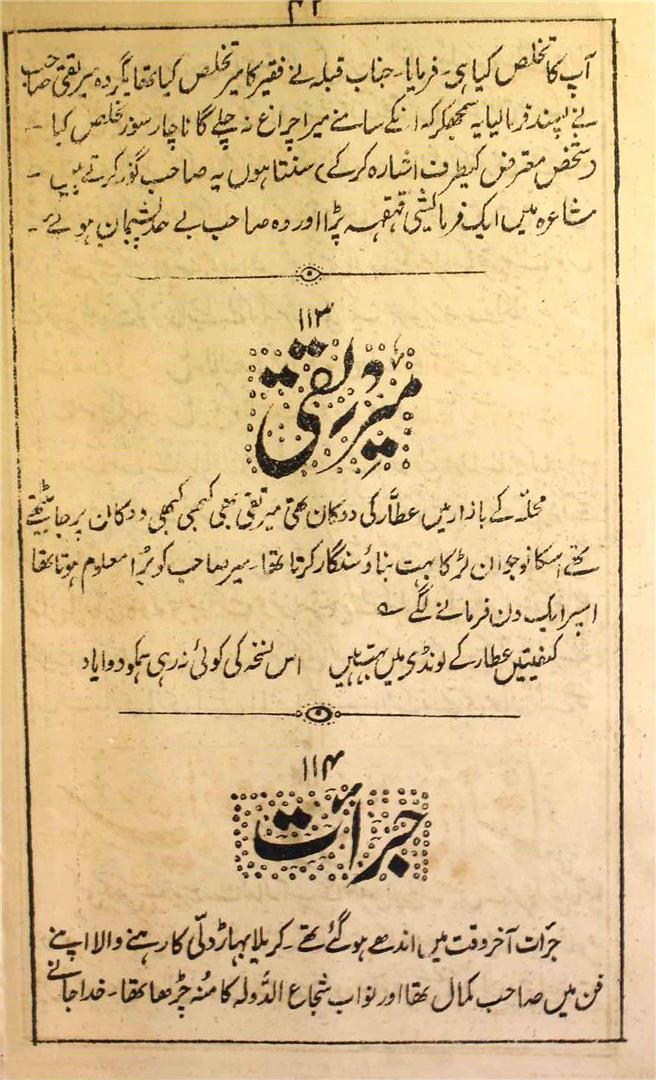 ۴۲
آپ کا تخلص کیا ہی۔ فرمایا۔ جناب قبلہ نے فقیر کا میر تخلص کیا تھا مگر وہ میر تقی صاحب
نے پسند فرمالیا یہ سمجھکر کہ انکے سامنے میرا چراغ نہ چلے گا ناچار سوز تخلص کیا ۔
(شخص معترض کیطرف اشارہ کرکے) سنتا ہوں یہ صاحب گوز کرتے ہیں ۔
مشاعرہ میں ایک فرمائشی قہقہہ پڑا اور وہ صاحب بے حد پشیمان ہوئے ۔
۱۱۳
میر تقی
محلہ کے بازار میں عطار کی دوکان تھی میر تقی بھی کبھی کبھی دوکان پر جا بیٹھتے
تھے اسکا نوجوان لڑکا بہت بناؤ سنگار کرتا تھا۔ میر صاحب کو بُرا معلوم ہوتا تھا
اسپر ایک دن فرمانے لگے ؎
کیفیتیں عطار کے لونڈی میں بہت ہیں اس نسخہ کی کوئی نہ رہی ہمکو دوا یاد
۱۱۴
جرأت
جرأت آخر وقت میں اندھے ہوگئے تھے۔ کریلا بھانڑ دلّی کا رہنے والا اپنے
فن میں صاحب کمال تھا اور نواب شجاع الدّولہ کا مُنہ چڑھا تھا۔ خدا جانے